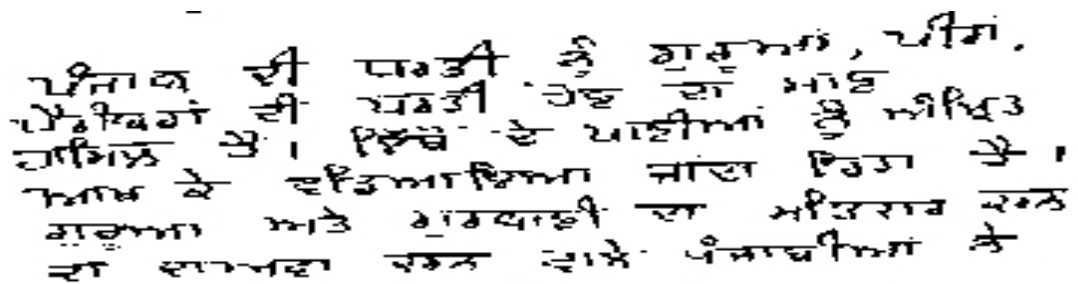 ਪੰਜਾਬ ਦੀ ਧਰਤੀ ਨੂੰ ਗੁਰੂਆਂ, ਪੀਰਾਂ,
ਪੈਗੰਬਰਾਂ ਦੀ ਧਰਤੀ ਹੋਣ ਦਾ ਮਾਣ
ਹਾਸਿਲ ਹੈ। ਇਥੋਂ ਦੇ ਪਾਣੀਆਂ ਨੂੰ ਅੰਮ੍ਰਿਤ
ਆਖ ਕੇ ਵਡਿਆਇਆ ਜਾਂਦਾ ਰਿਹਾ ਹੈ।
ਗੁਰੂਆਂ ਅਤੇ ਗੁਰਬਾਣੀ ਦਾ ਸਤਿਕਾਰ ਕਰਨ
ਦਾ ਦਾਅਵਾ ਕਰਨ ਵਾਲੇ ਪੰਜਾਬੀਆਂ ਨੇ